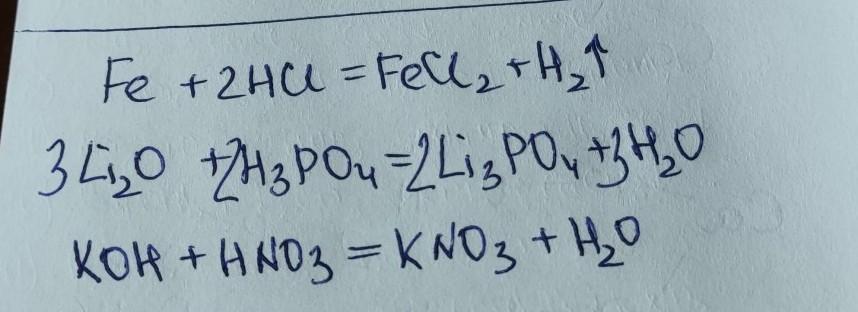 Fe + 2HCl = FeCl₂ + H₂↑
3Li₂O + 2H₃PO₄ = 2Li₃PO₄ + 3H₂O
KOH + HNO₃ = KNO₃ + H₂O